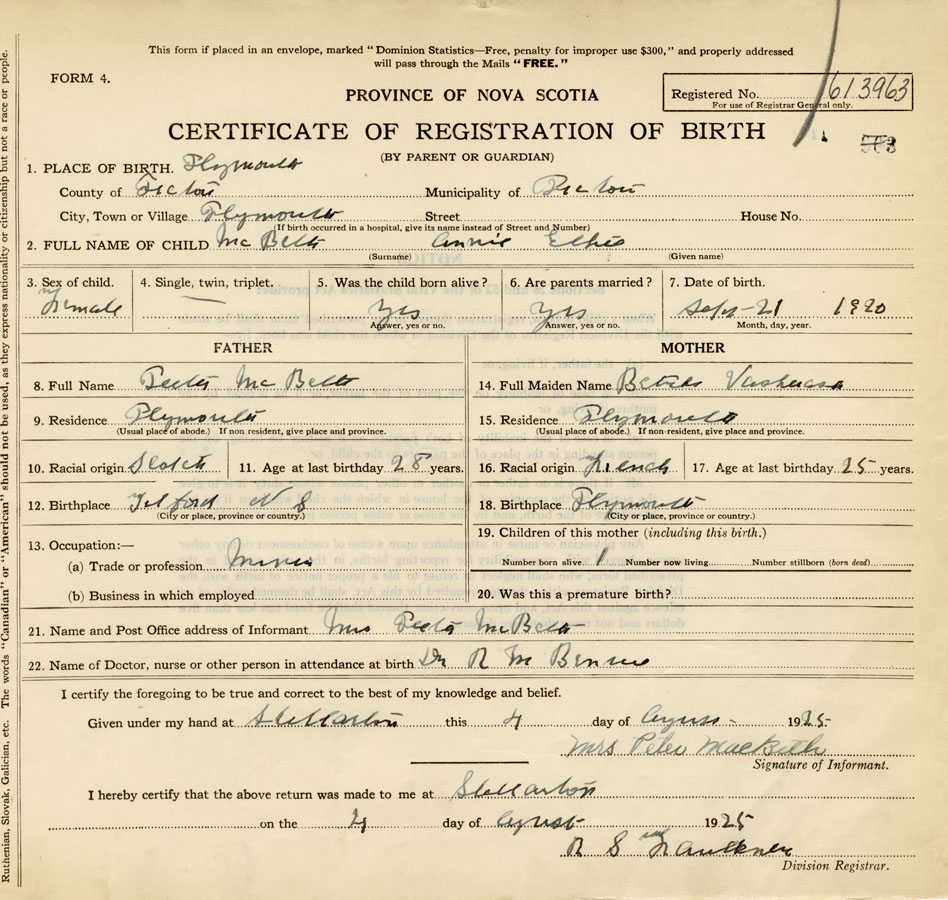 This form if placed in an envelope, marked "Dominion Statistics—Free, penalty for improper use $300," and properly addressed
will pass through the Mails "FREE."
FORM 4.
Registered No. 613963
For use of Registrar General only.
PROVINCE OF NOVA SCOTIA
CERTIFICATE OF REGISTRATION OF BIRTH
(BY PARENT OR GUARDIAN)
1. PLACE OF BIRTH. Plymouth
County of Pictou Municipality of Pictou
City, Town or Village Plymouth Street House No.
(If birth occurred in a hospital, give its name instead of Street and Number)
2. FULL NAME OF CHILD Mc Beth Annie
(Surname) (Given name)
3. Sex of child. 4. Single, twin, triplet. 5. Was the child born alive? 6. Are parents married? 7. Date of birth.
Female Yes Yes Sept-21 1920
Answer, yes or no. Answer, yes or no. Month, day, year.
FATHER MOTHER
8. Full Name Peter Mc Beth 14. Full Maiden Name
9. Residence Plymouth 15. Residence Plymouth
(Usual place of abode.) If non resident, give place and province. (Usual place of abode.) If non-resident, give place and province.
10. Racial origin Scotch 11. Age at last birthday 28 years. 16. Racial origin French 17. Age at last birthday 25 years.
12. Birthplace N S 18. Birthplace Plymouth
(City or place, province or country.) (City or place, province or country.)
13. Occupation:— 19. Children of this mother (including this birth.)
(a) Trade or profession Miner Number born alive 1 Number now living Number stillborn (born dead)
(b) Business in which employed 20. Was this a premature birth?
21. Name and Post Office address of Informant Mrs Peter McBeth
22. Name of Doctor, nurse or other person in attendance at birth Dr R M Benvie
I certify the foregoing to be true and correct to the best of my knowledge and belief.
Given under my hand at Stellarton this 4 day of August 1925
Mrs Peter MacBeth
Signature of Informant.
I hereby certify that the above return was made to me at Stellarton
on the 4 day of August 1925
R S Faulkner
Division Registrar.
Ruthenian, Slovak, Galician, etc. The words "Canadian" or "American" should not be used, as they express nationality or citizenship but not a race or people.